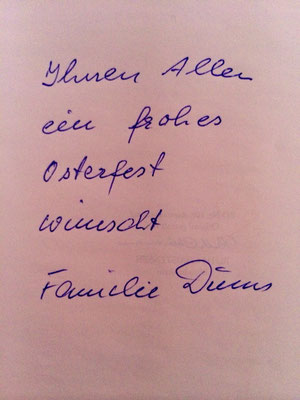 Ihnen Allen
ein frohes
Osterfest
wünscht
Familie